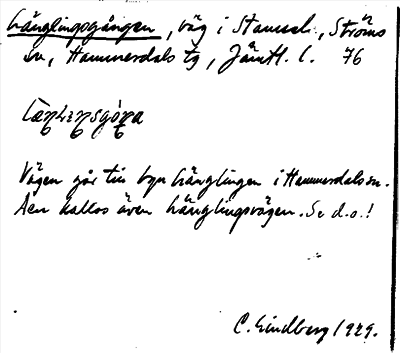 Långlingsgången, väg i Stamsele, Ströms
sn, Hammerdals tg, Jämtl. l. 76
Vägen går till byn Långlingen i Hammerdals sn.
Den kallas även Långlingsvägen. Se d.o.!
C. Lindberg 1929.